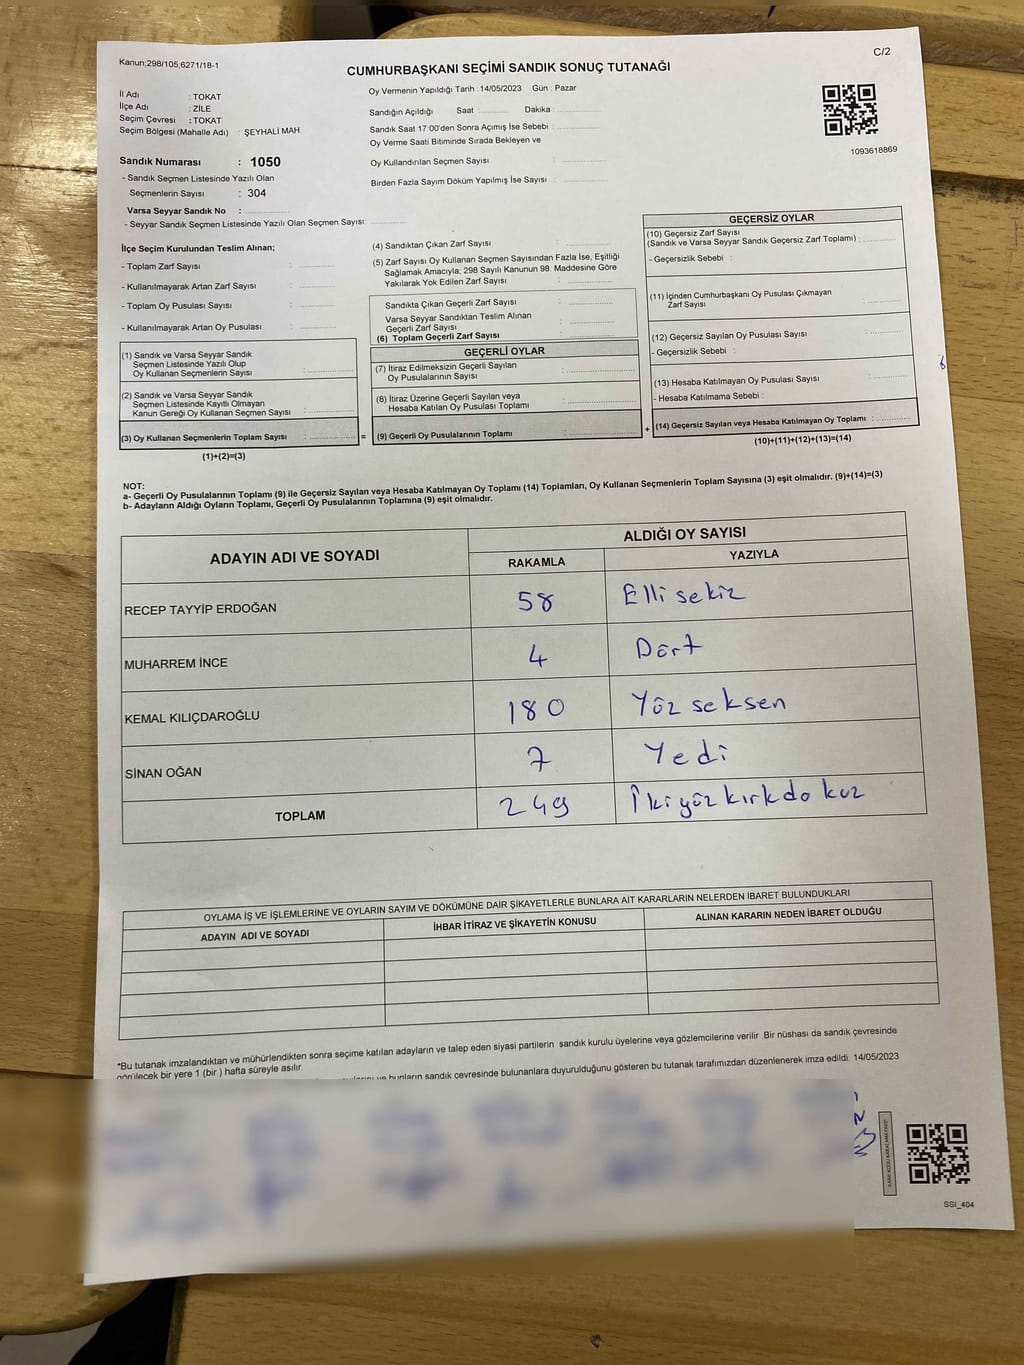 Kanun;298/105;6271/18-1
C/2
CUMHURBAŞKANI SEÇİMİ SANDIK SONUÇ TUTANAĞI
İl Adı : TOKAT
İlçe Adı : ZİLE
Seçim Çevresi : TOKAT
Seçim Bölgesi (Mahalle Adı) : ŞEYHALİ MAH.
Oy Vermenin Yapıldığı Tarih : 14/05/2023 Gün : Pazar
Sandığın Açıldığı Saat : Dakika :
Sandık Saat 17:00'den Sonra Açımış İse Sebebi :
Oy Verme Saati Bitiminde Sırada Bekleyen ve
Oy Kullandırılan Seçmen Sayısı :
Birden Fazla Sayım Döküm Yapılmış İse Sayısı :
1093618869
Sandık Numarası : 1050
- Sandık Seçmen Listesinde Yazılı Olan
Seçmenlerin Sayısı : 304
Varsa Seyyar Sandık No :
- Seyyar Sandık Seçmen Listesinde Yazılı Olan Seçmen Sayısı:
İlçe Seçim Kurulundan Teslim Alınan;
- Toplam Zarf Sayısı :
- Kullanılmayarak Artan Zarf Sayısı :
- Toplam Oy Pusulası Sayısı :
- Kullanılmayarak Artan Oy Pusulası :
(1) Sandık ve Varsa Seyyar Sandık
Seçmen Listesinde Yazılı Olup
Oy Kullanan Seçmenlerin Sayısı :
(2) Sandık ve Varsa Seyyar Sandık
Seçmen Listesinde Kayıtlı Olmayan
Kanun Gereği Oy Kullanan Seçmen Sayısı :
(3) Oy Kullanan Seçmenlerin Toplam Sayısı :
(1)+(2)=(3)
(4) Sandıktan Çıkan Zarf Sayısı :
(5) Zarf Sayısı Oy Kullanan Seçmen Sayısından Fazla İse, Eşitliği
Sağlamak Amacıyla; 298 Sayılı Kanunun 98. Maddesine Göre
Yakılarak Yok Edilen Zarf Sayısı :
Sandıkta Çıkan Geçerli Zarf Sayısı :
Varsa Seyyar Sandıktan Teslim Alınan
Geçerli Zarf Sayısı :
(6) Toplam Geçerli Zarf Sayısı :
GEÇERLİ OYLAR
(7) İtiraz Edilmeksizin Geçerli Sayılan
Oy Pusulalarının Sayısı :
(8) İtiraz Üzerine Geçerli Sayılan veya
Hesaba Katılan Oy Pusulası Toplamı :
= (9) Geçerli Oy Pusulalarının Toplamı :
GEÇERSİZ OYLAR
(10) Geçersiz Zarf Sayısı
(Sandık ve Varsa Seyyar Sandık Geçersiz Zarf Toplamı) :
- Geçersizlik Sebebi :
(11) İçinden Cumhurbaşkanı Oy Pusulası Çıkmayan
Zarf Sayısı :
(12) Geçersiz Sayılan Oy Pusulası Sayısı :
- Geçersizlik Sebebi :
(13) Hesaba Katılmayan Oy Pusulası Sayısı :
- Hesaba Katılmama Sebebi :
+ (14) Geçersiz Sayılan veya Hesaba Katılmayan Oy Toplamı :
(10)+(11)+(12)+(13)=(14)
NOT:
a- Geçerli Oy Pusulalarının Toplamı (9) ile Geçersiz Sayılan veya Hesaba Katılmayan Oy Toplamı (14) Toplamları, Oy Kullanan Seçmenlerin Toplam Sayısına (3) eşit olmalıdır. (9)+(14)=(3)
b- Adayların Aldığı Oyların Toplamı, Geçerli Oy Pusulalarının Toplamına (9) eşit olmalıdır.
ADAYIN ADI VE SOYADI
ALDIĞI OY SAYISI
RAKAMLA YAZIYLA
RECEP TAYYİP ERDOĞAN 58 Elli sekiz
MUHARREM İNCE 4 Dört
KEMAL KILIÇDAROĞLU 180 Yüz seksen
SİNAN OĞAN 7 Yedi
TOPLAM 249 İkiyüz kırkdokuz
OYLAMA İŞ VE İŞLEMLERİNE VE OYLARIN SAYIM VE DÖKÜMÜNE DAİR ŞİKAYETLERLE BUNLARA AİT KARARLARIN NELERDEN İBARET BULUNDUKLARI
ADAYIN ADI VE SOYADI İHBAR İTİRAZ VE ŞİKAYETİN KONUSU ALINAN KARARIN NEDEN İBARET OLDUĞU
*Bu tutanak imzalandıktan ve mühürlendikten sonra seçime katılan adayların ve talep eden siyasi partilerin sandık kurulu üyelerine veya gözlemcilerine verilir. Bir nüshası da sandık çevresinde
görülecek bir yere 1 (bir ) hafta süreyle asılır.
ve bunların sandık çevresinde bulunanlara duyurulduğunu gösteren bu tutanak tarafımızdan düzenlenerek imza edildi. 14/05/2023
SSI_404